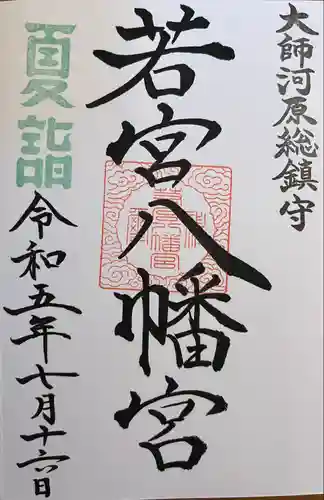 大師河原総鎮守
若宮八幡宮
夏詣
令和五年七月十六日